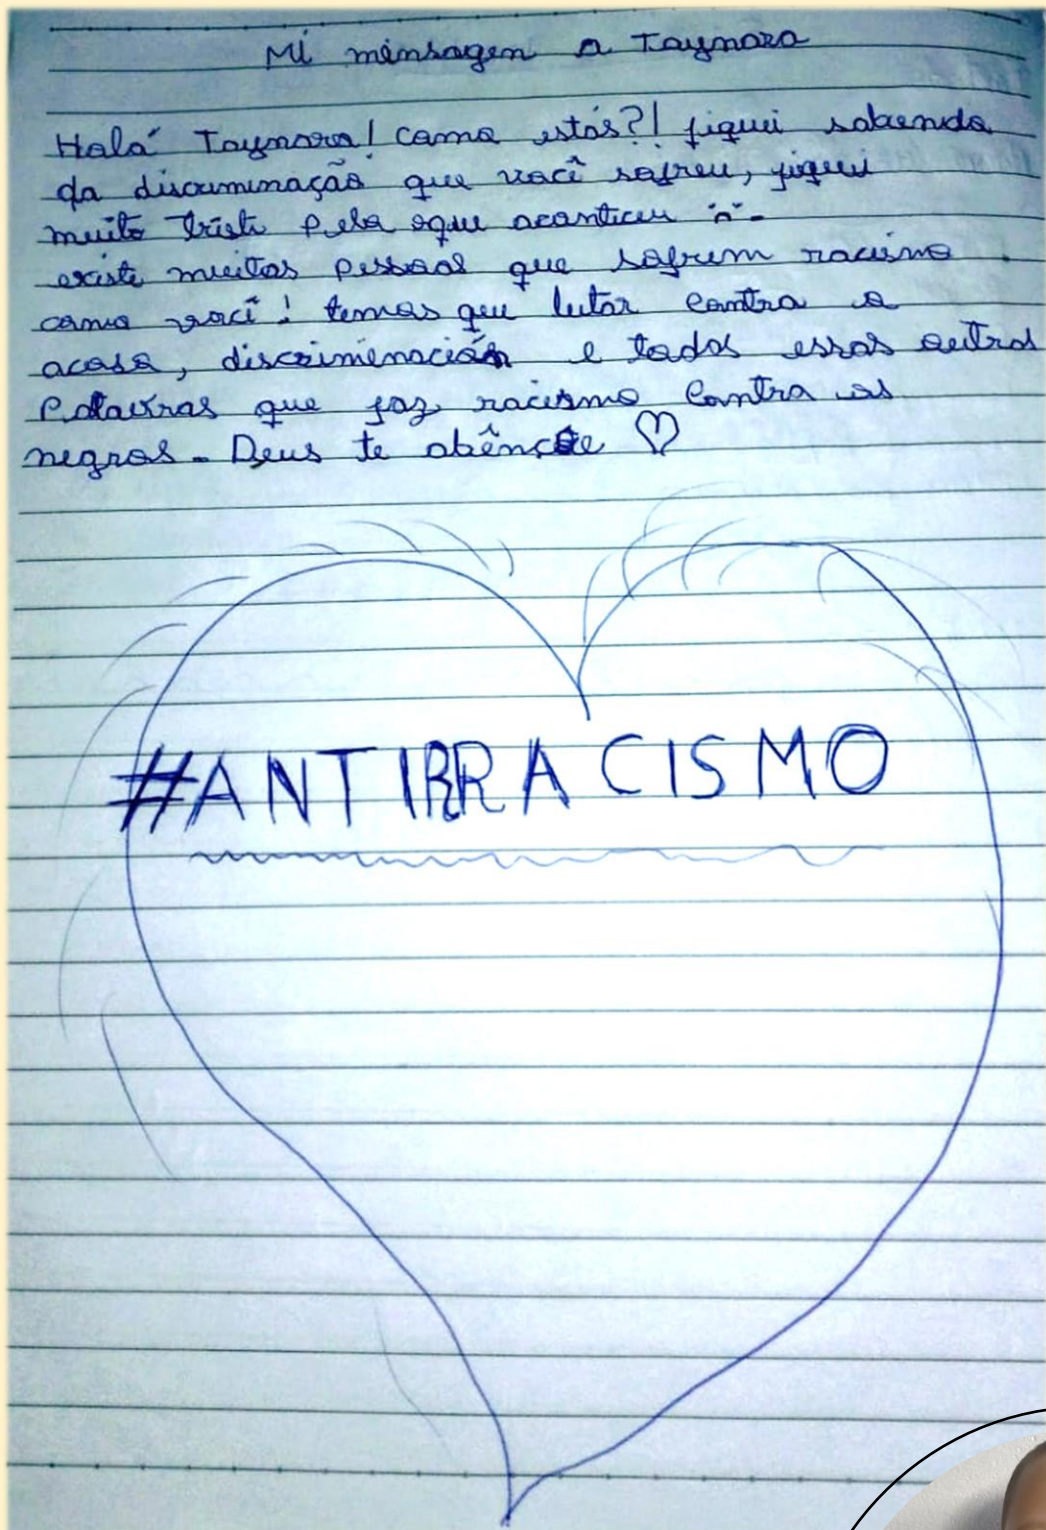 Mi mensagen a Taynara
Holá Taynara! Como estás?! fiquei sabendo
da discriminação que você sofreu, fiquei
muito triste pelo oque aconticeu ·n·-
existe muitas pessoas que sofrem racismo
como você! temos que lutar contra o
acoso, discrimenación e todos essas outras
Palavras que faz racismo contra os
negros- Deus te abênçõe ♡
#ANTIRRACISMO